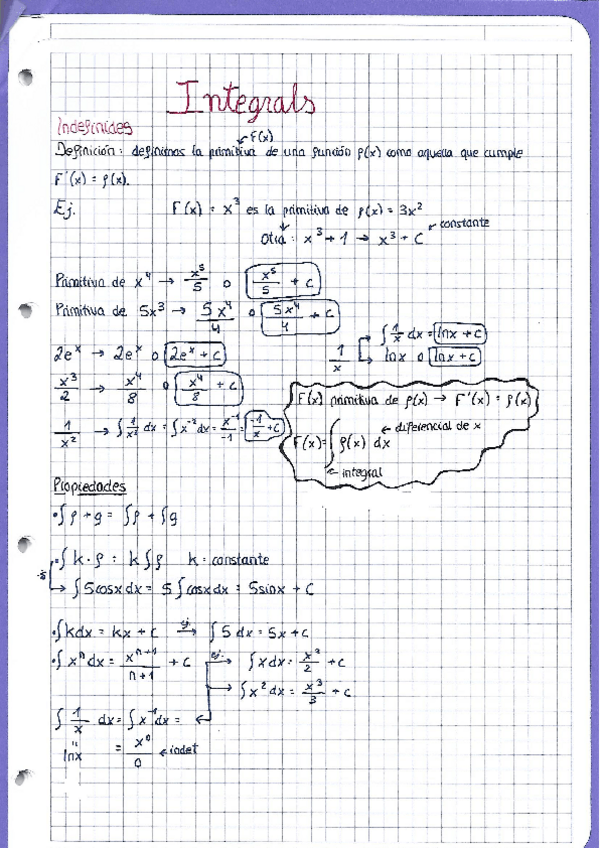 Integrals
Indefinides
F(x)
Definición: definimos la primitiva de una función f(x) como aquella que cumple
F'(x) = f(x).
Ej. F(x) = x³ es la primitiva de f(x) = 3x²
Otra: x³+1 → x³+C constante
Primitiva de x⁴ → x⁵/5 o x⁵/5 + C
Primitiva de 5x³ → 5x⁴/4 o 5x⁴/4 + C
1/x → ∫ 1/x dx = lnx + C
→ lnx o lnx + C
2eˣ → 2eˣ o 2eˣ + C
x³/2 → x⁴/8 o x⁴/8 + C
1/x² → ∫ 1/x² dx = ∫x⁻²dx = x⁻¹/-1 = -1/x + C
F(x) primitiva de f(x) → F'(x) = f(x)
F(x) = ∫ f(x) dx ← diferencial de x
← integral
Propiedades
•∫f+g = ∫f + ∫g
•∫k·f = k∫f k = constante
→ ∫5cosxdx = 5∫cosxdx = 5sinx + C
•∫kdx = kx + C ej. → ∫5 dx = 5x + C
•∫xⁿdx = xⁿ⁺¹/n+1 + C ej. → ∫xdx = x²/2 + C
→ ∫x²dx = x³/3 + C
∫ 1/x dx = ∫x⁻¹dx = ←
" lnx = x⁰/0 ← indet